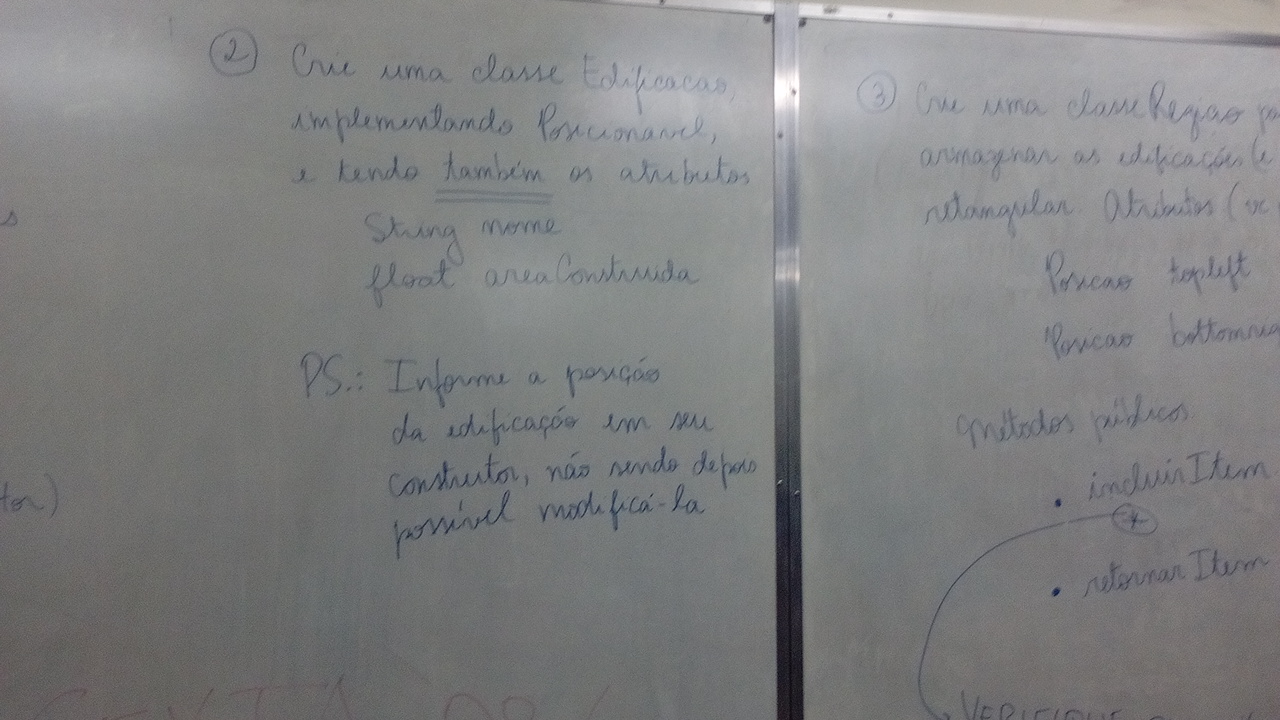 s
tor)
② Crie uma classe Edificacao,
implementando Posicionavel,
e tendo também os atributos
String nome
float areaConstruida
PS.: Informe a posição
da edificação em seu
construtor, não sendo depois
possível modificá-la
③ Crie uma classe Regiao
armazenar as edificações (e
retangular. Atributos (
Posicao topleft
Posicao bottomrig
Métodos públicos
• incluirItem
*
• retornarItem
VERIFIQUE
SEXTA